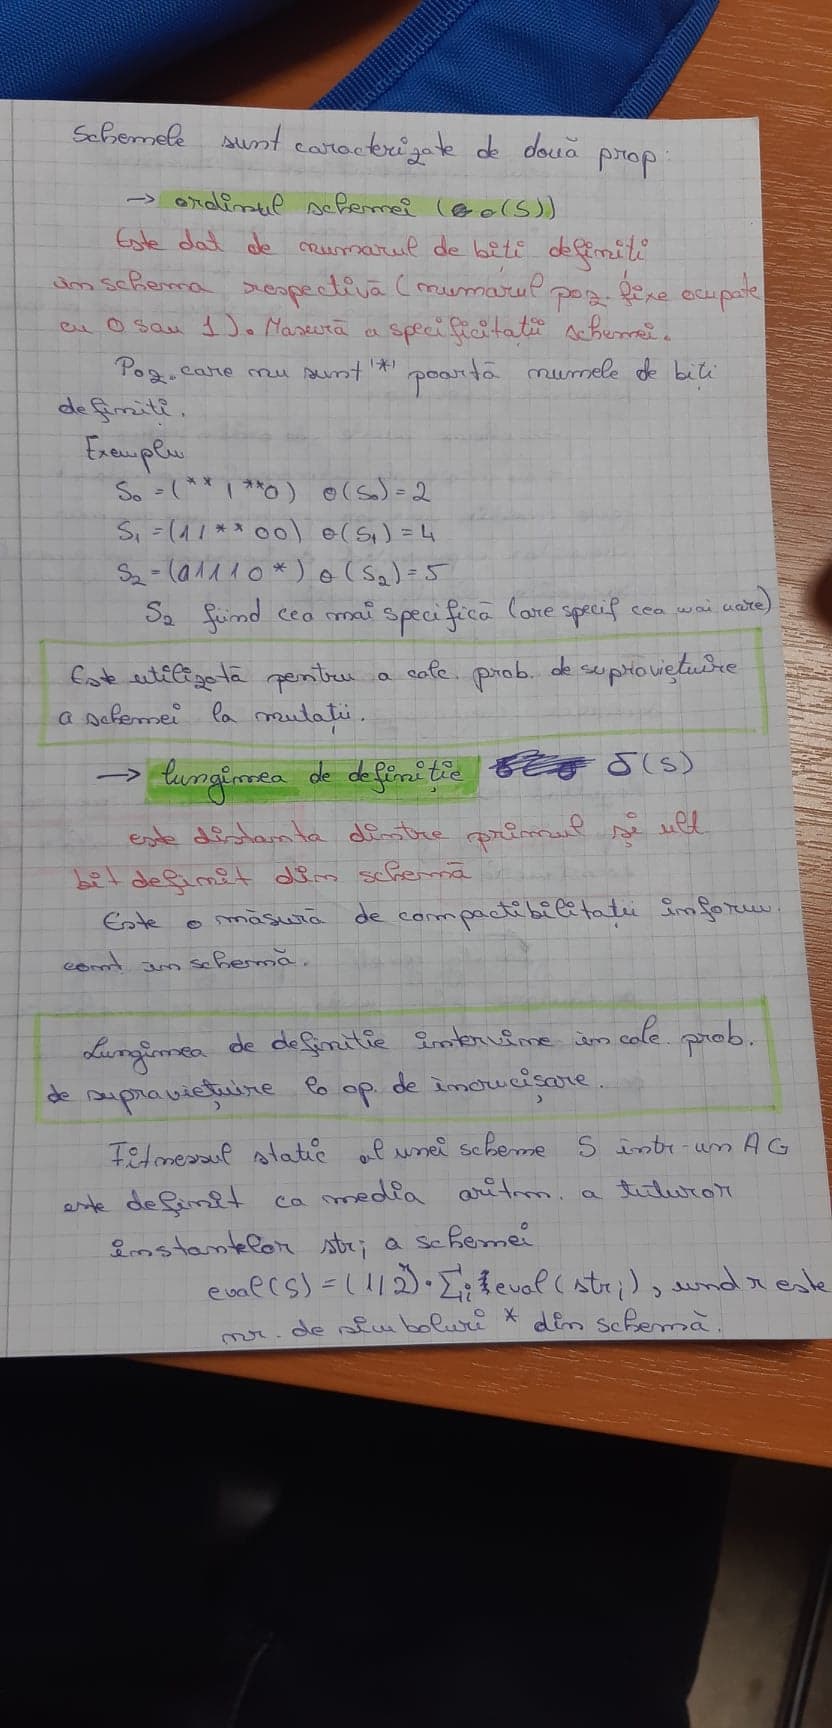 Schemele sunt caracterizate de două prop:
→ ordinul schemei (o(S))
Este dat de numarul de biți definiti
în schema respectivă (numărul poz. fixe ocupate
cu 0 sau 1). Masură a specificitatii schemei.
Poz. care nu sunt '*' poartă numele de biți
definiti.
Exemplu
S₀ = (**1**0) o(S₀) = 2
S₁ = (11**00) o(S₁) = 4
S₂ = (01110*) o(S₂) = 5
S₂ fiind cea mai specifică (are specif cea mai mare)
Este utilizată pentru a calc. prob. de supraviețuire
a schemei la mutații.
→ lungimea de definiție δ(S)
este distanta dintre primul și ult
bit definit din schemă
Este o măsură de compactibilitații inform.
cont în schemă.
Lungimea de definitie intervine în calc. prob.
de supraviețuire la op. de încrucișare.
Fitnessul static al unei scheme S intr-un AG
este definit ca media aritm. a tuturor
instantelor strᵢ a schemei
eval(S) = (1/2ʳ) · Σᵢ eval(strᵢ), und r este
nr. de simboluri * din schemă.